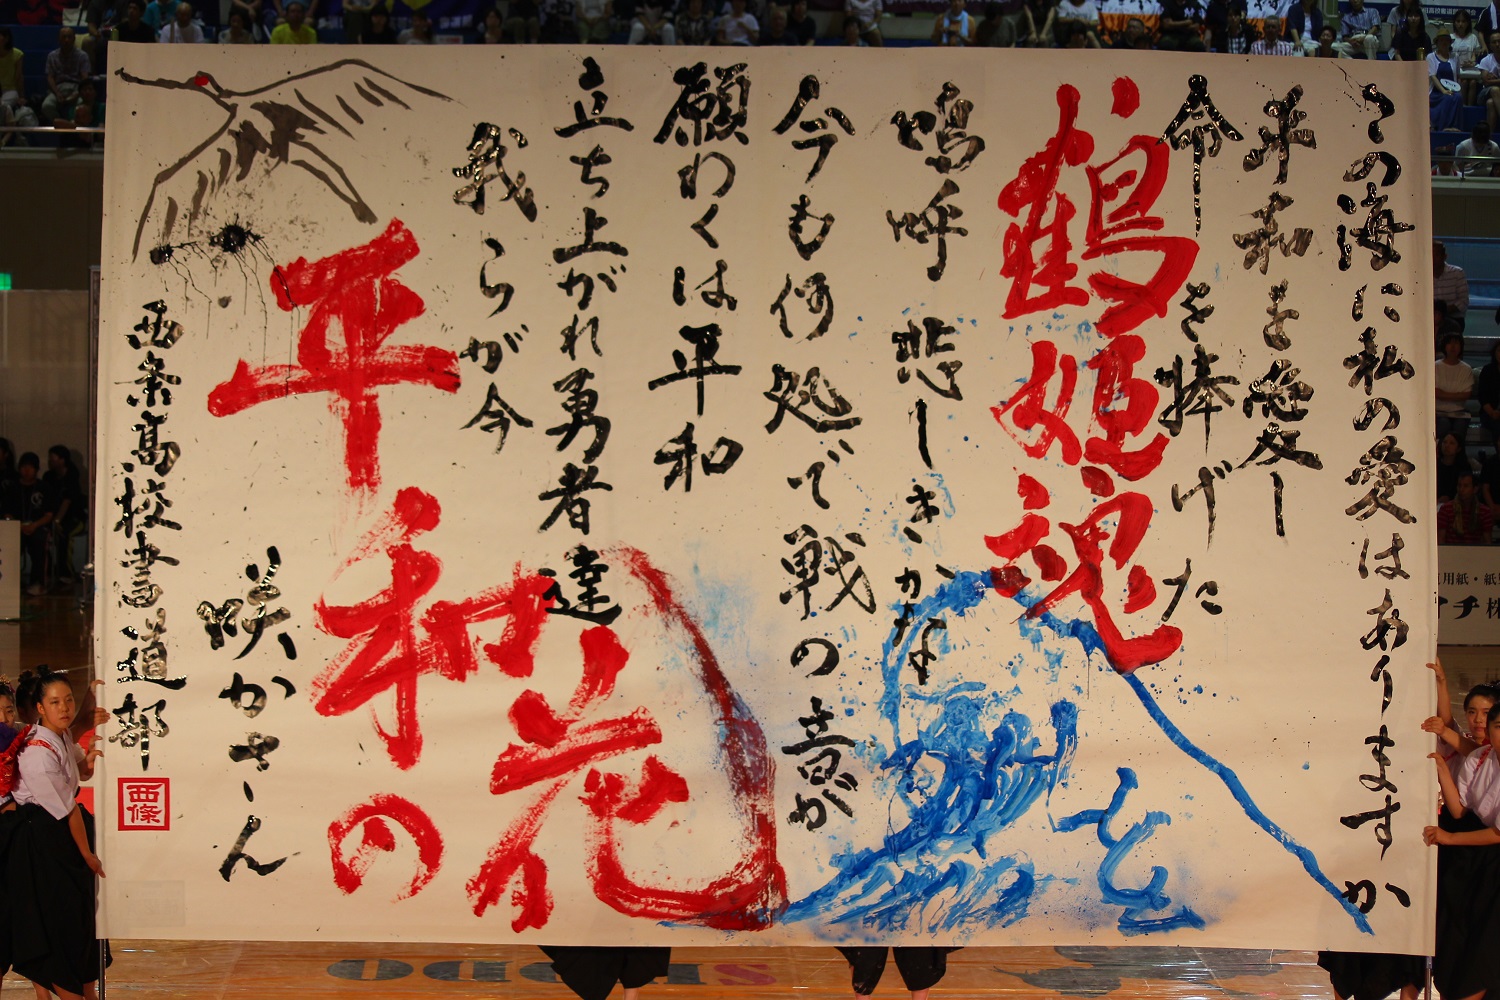 この海に私の愛はありますか
平和を愛し
命を捧げた
鶴姫魂を
嗚呼 悲しきかな
今も何処で戦の音が
願わくは平和
立ち上がれ勇者達
我らが今
平和の花
咲かさん
西条高校書道部
西條
用紙・紙
チ株